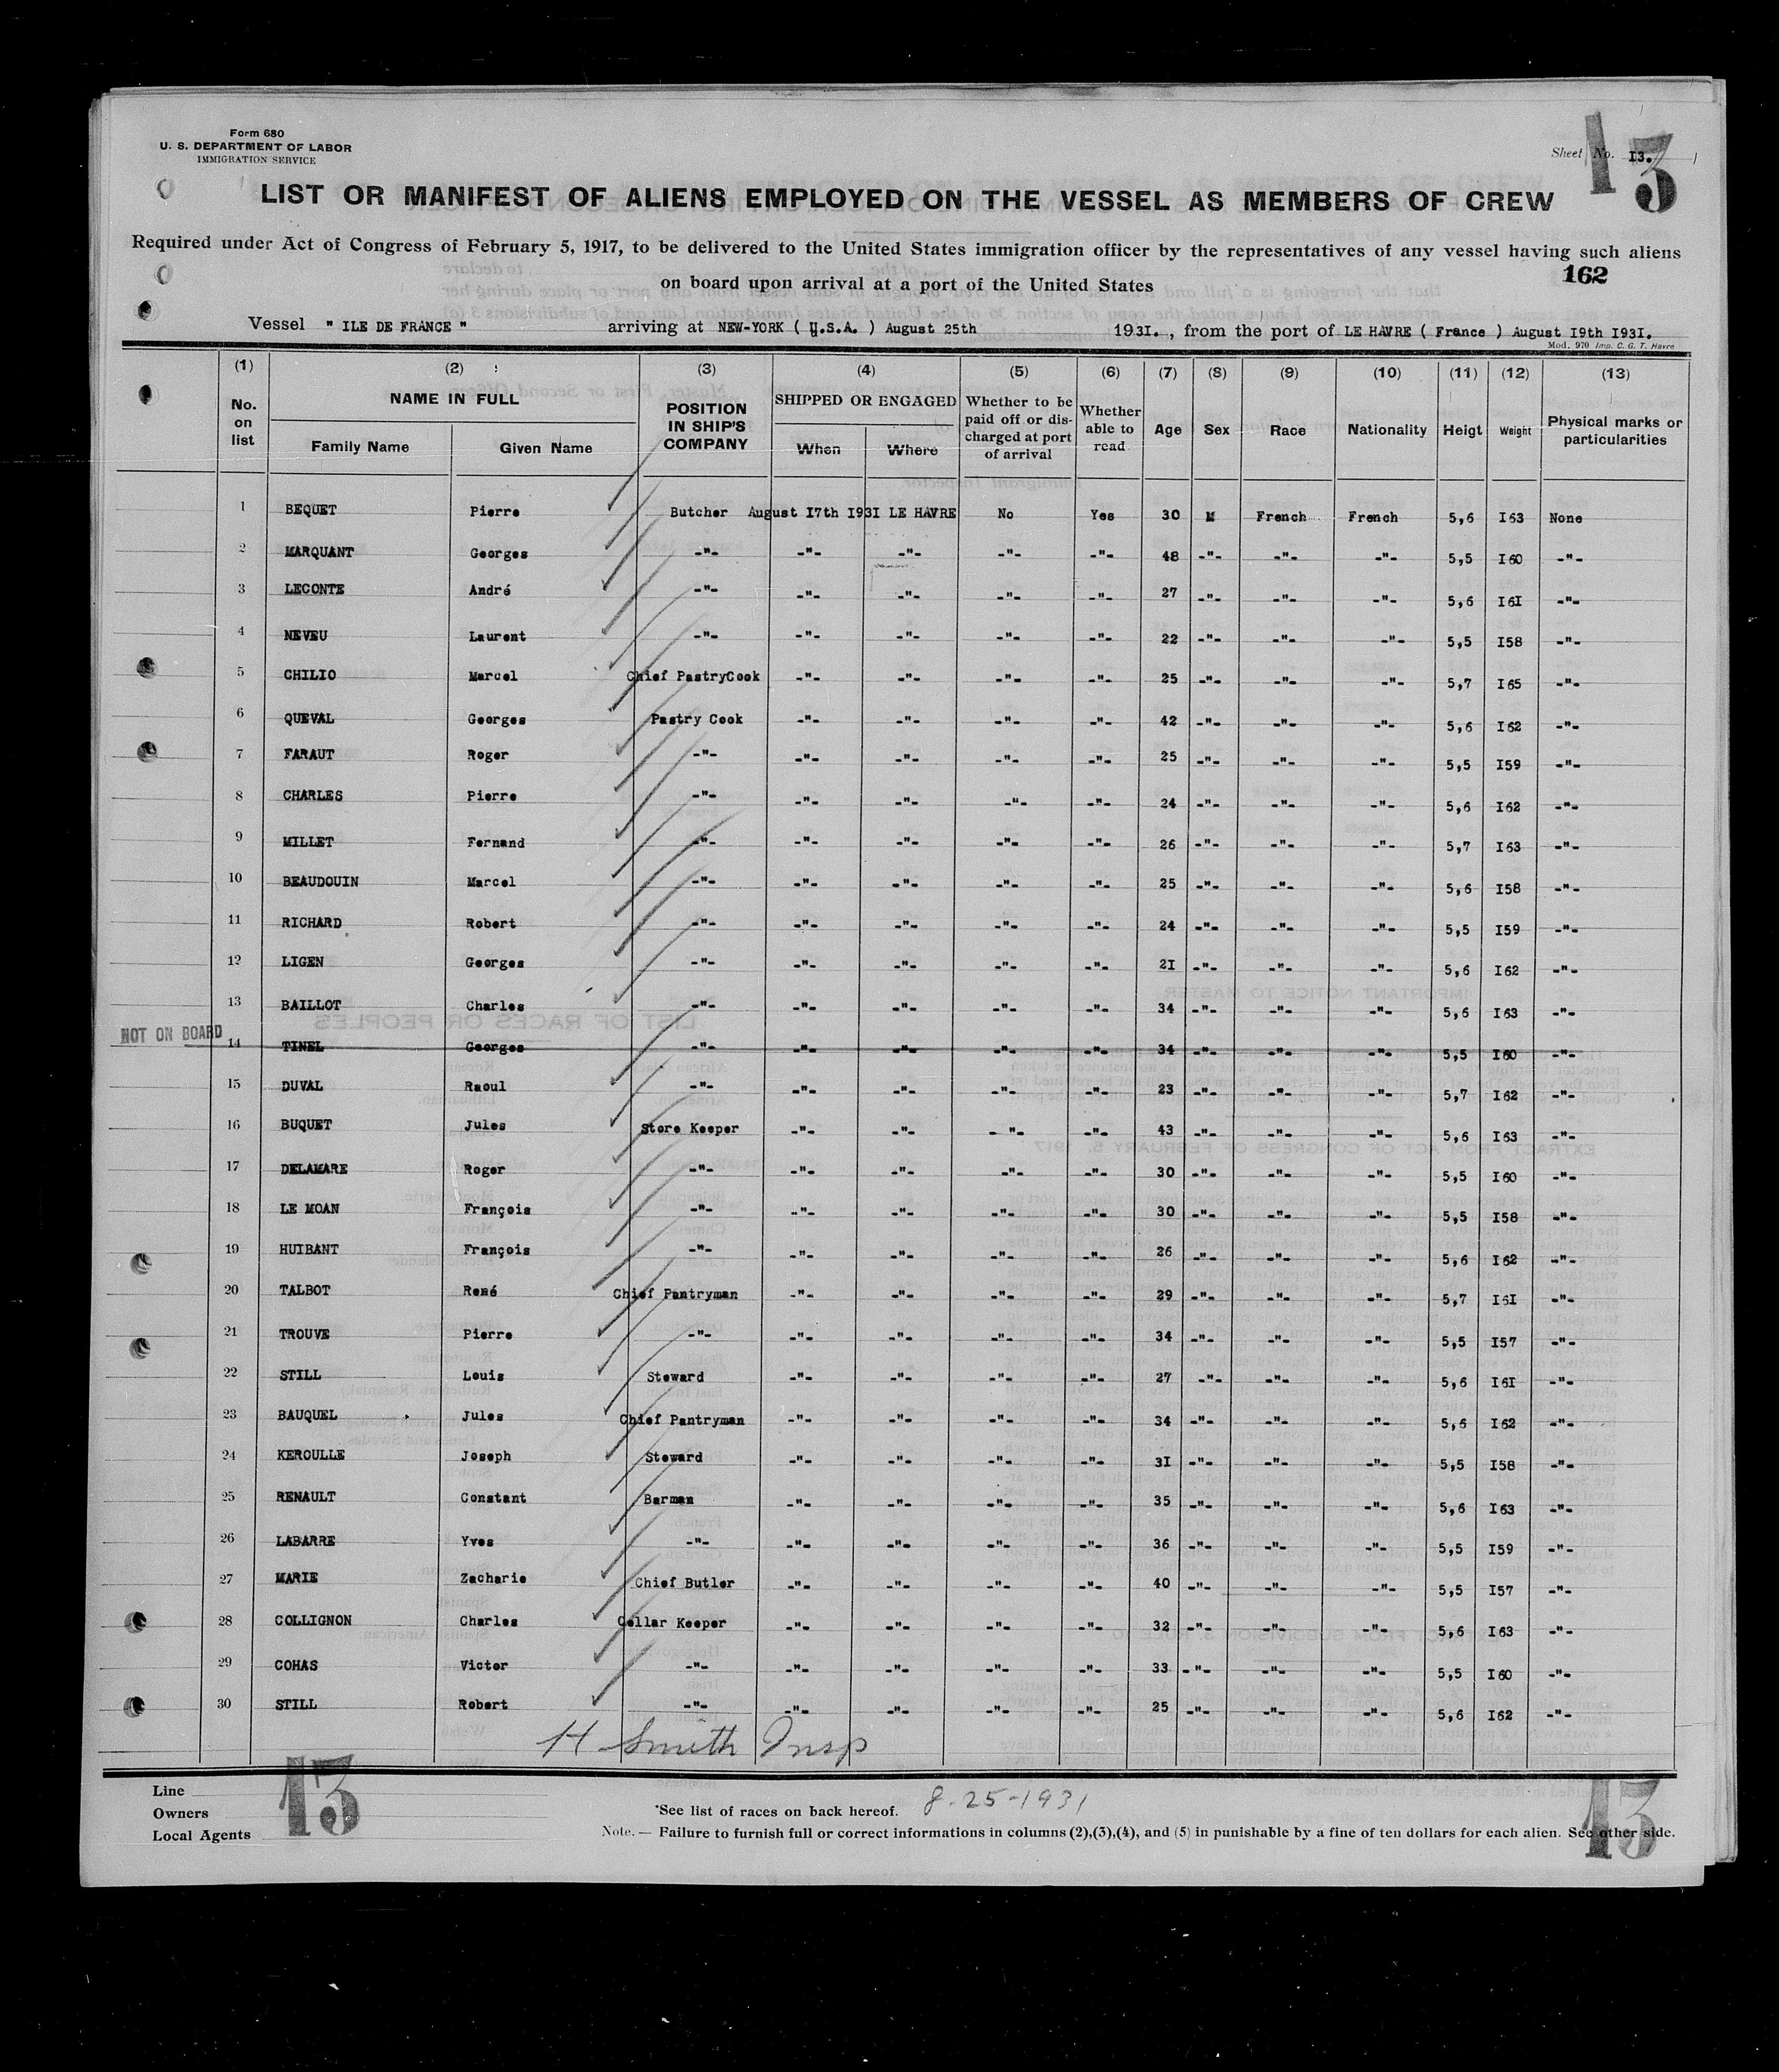 Form 680
U. S. DEPARTMENT OF LABOR
IMMIGRATION SERVICE
Sheet No. I3.
13
LIST OR MANIFEST OF ALIENS EMPLOYED ON THE VESSEL AS MEMBERS OF CREW
Required under Act of Congress of February 5, 1917, to be delivered to the United States immigration officer by the representatives of any vessel having such aliens
on board upon arrival at a port of the United States
162
Vessel " ILE DE FRANCE " arriving at NEW-YORK ( U.S.A. ) August 25th 193I. , from the port of LE HAVRE ( France ) August I9th I93I.
Mod. 970 Imp. C. G. T. Havre
(1) (2) (3) (4) (5) (6) (7) (8) (9) (10) (11) (12) (13)
No. on list NAME IN FULL Family Name Given Name POSITION IN SHIP'S COMPANY SHIPPED OR ENGAGED When Where Whether to be paid off or discharged at port of arrival Whether able to read Age Sex Race Nationality Heigt Weight Physical marks or particularities
1 BEQUET Pierre Butcher August I7th I93I LE HAVRE No Yes 30 M French French 5,6 I63 None
2 MARQUANT Georges -"- -"- -"- -"- -"- 48 -"- -"- -"- 5,5 I60 -"-
3 LECONTE André -"- -"- -"- -"- -"- 27 -"- -"- -"- 5,6 I6I -"-
4 NEVEU Laurent -"- -"- -"- -"- -"- 22 -"- -"- -"- 5,5 I58 -"-
5 CHILIO Marcel Chief PastryCook -"- -"- -"- -"- 25 -"- -"- -"- 5,7 I65 -"-
6 QUEVAL Georges Pastry Cook -"- -"- -"- -"- 42 -"- -"- -"- 5,6 I62 -"-
7 FARAUT Roger -"- -"- -"- -"- -"- 25 -"- -"- -"- 5,5 I59 -"-
8 CHARLES Pierre -"- -"- -"- -"- -"- 24 -"- -"- -"- 5,6 I62 -"-
9 MILLET Fernand -"- -"- -"- -"- -"- 26 -"- -"- -"- 5,7 I63 -"-
10 BEAUDOUIN Marcel -"- -"- -"- -"- -"- 25 -"- -"- -"- 5,6 I58 -"-
11 RICHARD Robert -"- -"- -"- -"- -"- 24 -"- -"- -"- 5,5 I59 -"-
12 LIGEN Georges -"- -"- -"- -"- -"- 2I -"- -"- -"- 5,6 I62 -"-
13 BAILLOT Charles -"- -"- -"- -"- -"- 34 -"- -"- -"- 5,6 I63 -"-
NOT ON BOARD 14 TINEL Georges -"- -"- -"- -"- -"- 34 -"- -"- -"- 5,5 I60 -"-
15 DUVAL Raoul -"- -"- -"- -"- -"- 23 -"- -"- -"- 5,7 I62 -"-
16 BUQUET Jules Store Keeper -"- -"- - "- -"- 43 -"- -"- -"- 5,6 I63 -"-
17 DELAMARE Roger -"- -"- -"- -"- -"- 30 -"- -"- -"- 5,5 I60 -"-
18 LE MOAN François -"- -"- -"- -"- -"- 30 -"- -"- -"- 5,5 I58 -"-
19 HUIBANT François -"- -"- -"- -"- -"- 26 -"- -"- -"- 5,6 I62 -"-
20 TALBOT René Chief Pantryman -"- -"- -"- -"- 29 -"- -"- -"- 5,7 I6I -"-
21 TROUVE Pierre -"- -"- -"- -"- -"- 34 -"- -"- -"- 5,5 I57 -"-
22 STILL Louis Steward -"- -"- -"- -"- 27 -"- -"- -"- 5,6 I6I -"-
23 BAUQUEL Jules Chief Pantryman -"- -"- -"- -"- 34 -"- -"- -"- 5,6 I62 -"-
24 KEROULLE Joseph Steward -"- -"- -"- -"- 3I -"- -"- -"- 5,5 I58 -"-
25 RENAULT Constant Barman -"- -"- -"- -"- 35 -"- -"- -"- 5,6 I63 -"-
26 LABARRE Yves -"- -"- -"- -"- -"- 36 -"- -"- -"- 5,5 I59 -"-
27 MARIE Zacharie Chief Butler -"- -"- -"- -"- 40 -"- -"- -"- 5,5 I57 -"-
28 COLLIGNON Charles Cellar Keeper -"- -"- -"- -"- 32 -"- -"- -"- 5,6 I63 -"-
29 COHAS Victor -"- -"- -"- -"- -"- 33 -"- -"- -"- 5,5 I60 -"-
30 STILL Robert -"- -"- -"- -"- -"- 25 -"- -"- -"- 5,6 I62 -"-
H Smith Insp
Line
Owners
Local Agents
13
*See list of races on back hereof. 8-25-1931
Note. — Failure to furnish full or correct informations in columns (2),(3),(4), and (5) in punishable by a fine of ten dollars for each alien. See other side.
13